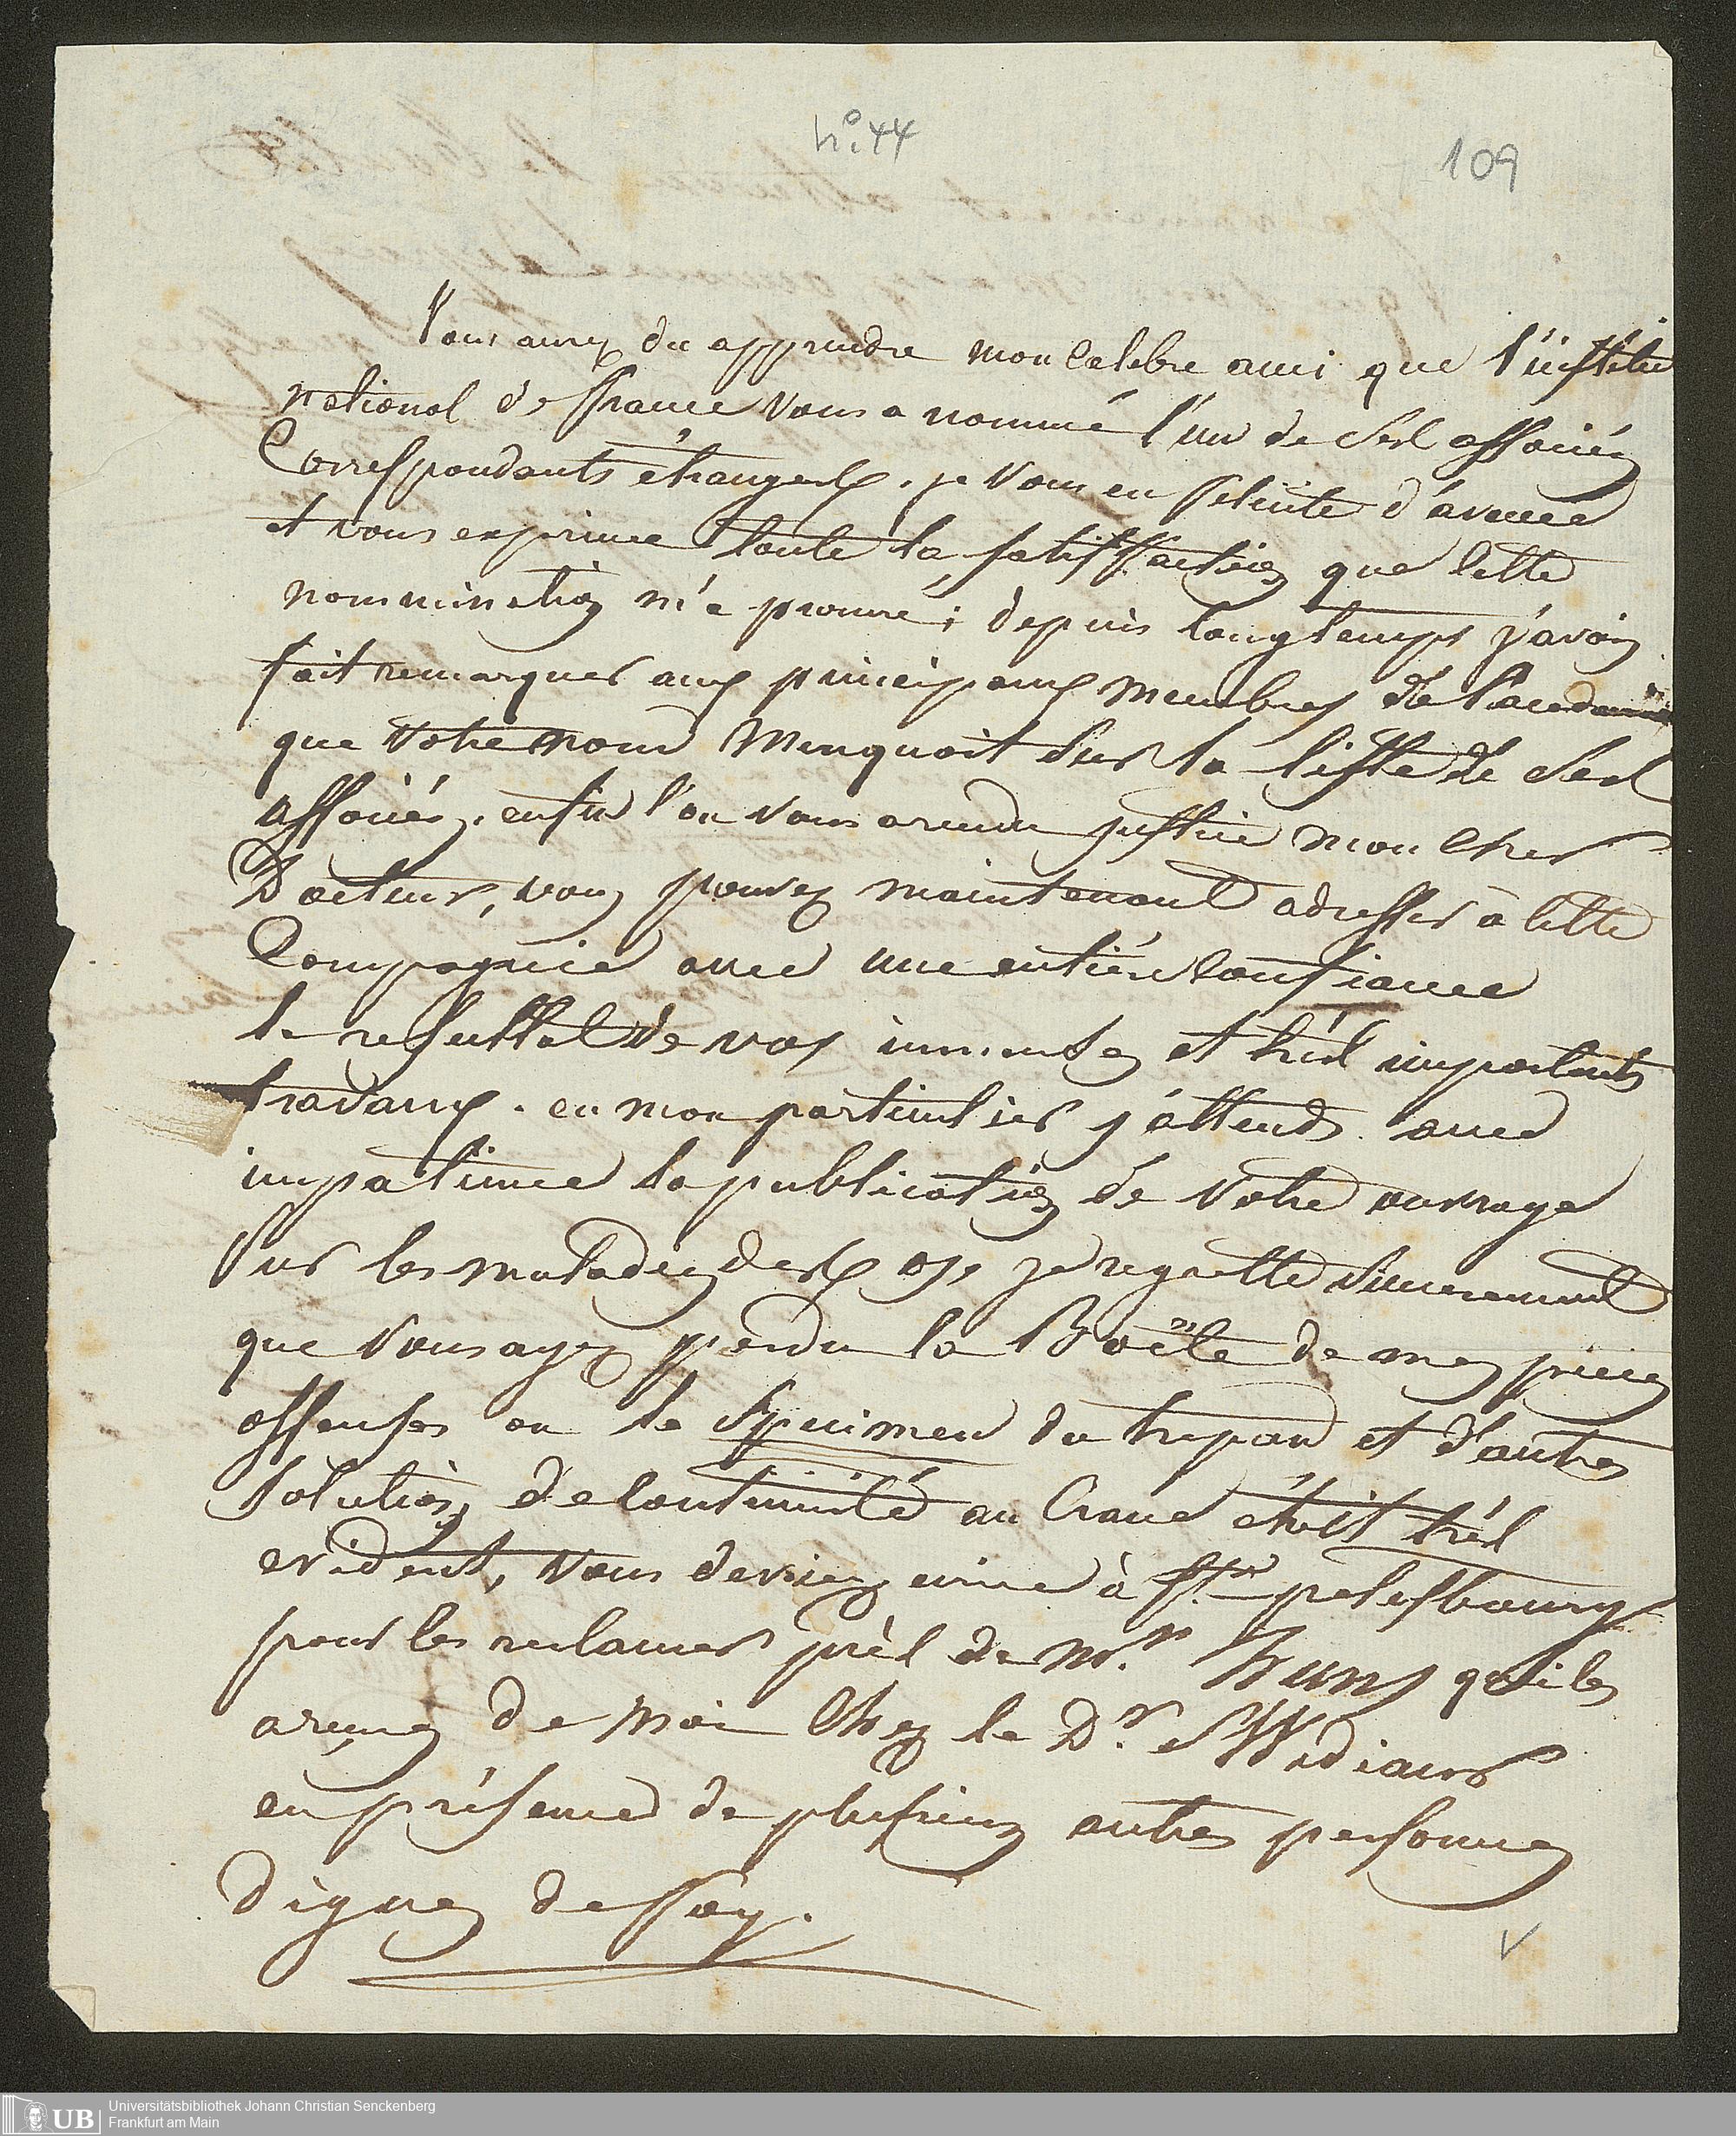 n:° 44
109
Vous aurez du apprendre mon celebre ami que l'institu
national de france vous a nommé l'un de ses associés
Correspondants étrangers. je vous en felicite d'avance
et vous exprime toute la satisfaction que cette
nommination m'a procuré; depuis longtemps j'avois
fait remarquer aux principaux membres de l'accademie
que votre nom Menquoit sur la liste de ses
associés. enfin l'on vous a rendu justice mon cher
Docteur, vous pouvez maintenant adresser a cette
Compagnie avec une entière confiance
le resultat de vos immenses et très importants
travaux. en mon particulier j'attends avec
impatience la publication de votre ouvrage
sur les maladies des os, je regrette sincerement
que vous ayez perdu la Boëte de mes pieces
osseuses ou le Specimen du trepan et d'autres
solutions de continuité au crane étoit très
evident, vous devriez ecrire à st. petesbourg
pour les reclamer près de mr. qui les
a reçues de moi chez le Dr. Swediaur
en présence de plusieurs autres personnes
dignes de foy.
Universitätsbibliothek Johann Christian Senckenberg
Frankfurt am Main
UB